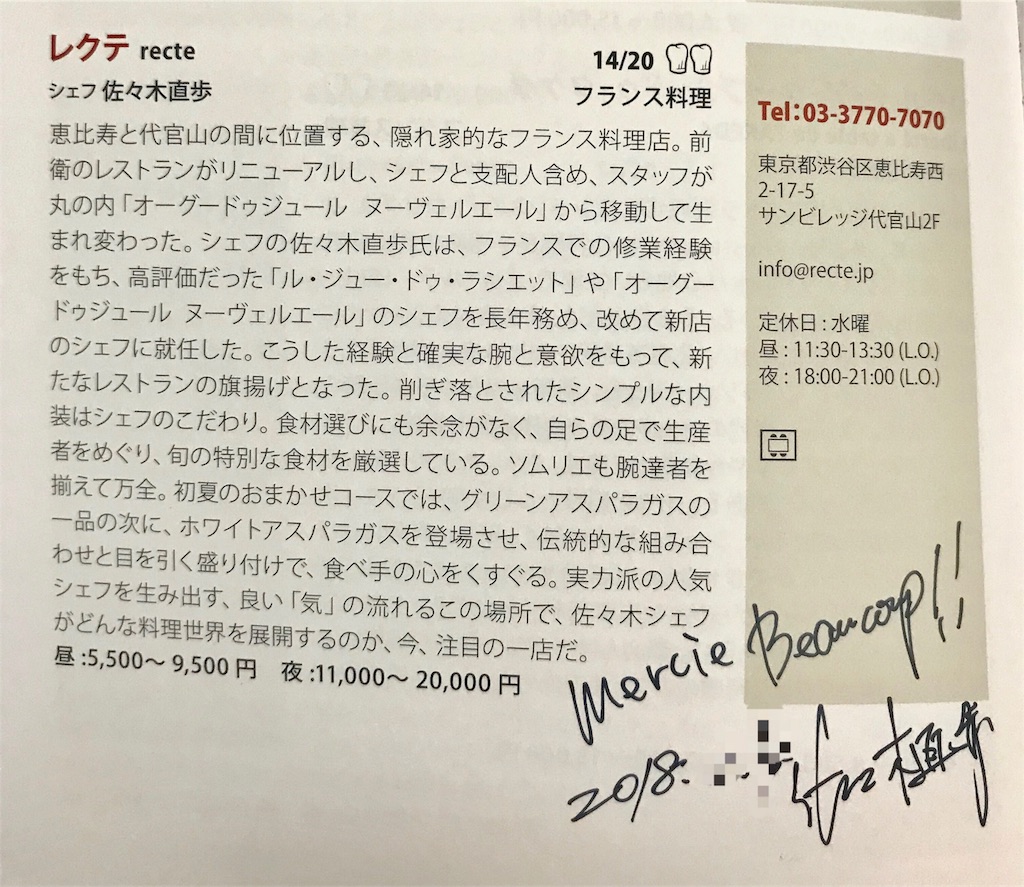 レクテ recte
14/20
シェフ 佐々木直歩
フランス料理
恵比寿と代官山の間に位置する、隠れ家的なフランス料理店。前
衛のレストランがリニューアルし、シェフと支配人含め、スタッフが
丸の内「オーグードゥジュール ヌーヴェルエール」から移動して生
まれ変わった。シェフの佐々木直歩氏は、フランスでの修業経験
をもち、高評価だった「ル・ジュー・ドゥ・ラシエット」や「オーグー
ドゥジュール ヌーヴェルエール」のシェフを長年務め、改めて新店
のシェフに就任した。こうした経験と確実な腕と意欲をもって、新
たなレストランの旗揚げとなった。削ぎ落とされたシンプルな内
装はシェフのこだわり。食材選びにも余念がなく、自らの足で生産
者をめぐり、旬の特別な食材を厳選している。ソムリエも腕達者を
揃えて万全。初夏のおまかせコースでは、グリーンアスパラガスの
一品の次に、ホワイトアスパラガスを登場させ、伝統的な組み合
わせと目を引く盛り付けで、食べ手の心をくすぐる。実力派の人気
シェフを生み出す、良い「気」の流れるこの場所で、佐々木シェフ
がどんな料理世界を展開するのか、今、注目の一店だ。
昼:5,500～9,500円 夜:11,000～20,000円
Tel:03-3770-7070
東京都渋谷区恵比寿西
2-17-5
サンビレッジ代官山2F
info@recte.jp
定休日:水曜
昼:11:30-13:30(L.O.)
夜:18:00-21:00(L.O.)
Mercie Beaucoup!!
2018. 佐々木直歩